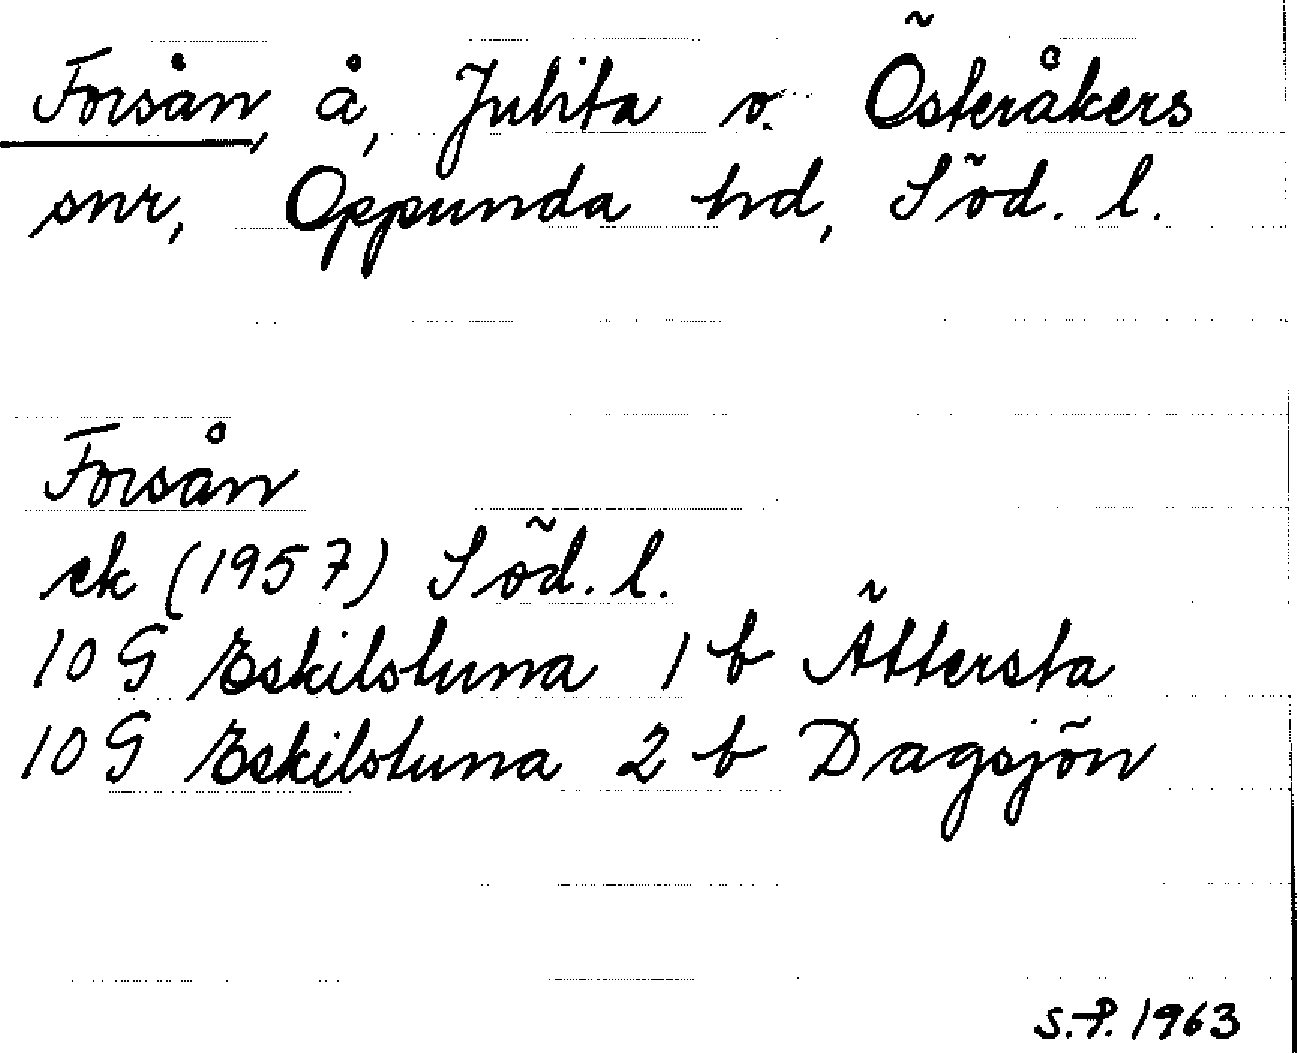 Forsån, å, Julita o. Österåkers
snr, Oppunda hd, Söd. l.
Forsån
ek (1957) Söd. l.
10 G Eskilstuna 1 b Ättersta
10 G Eskilstuna 2 b Dagsjön
S.P. 1963